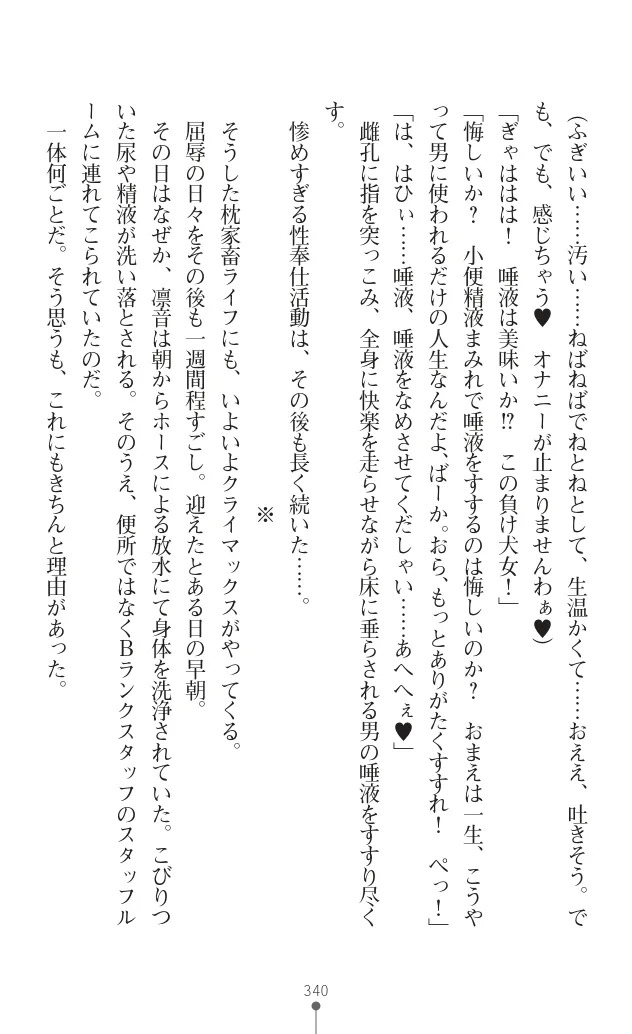 （ふぎいい……汚い……ねばねばでねとねとして、生温かくて……おええ、吐きそう。で
も、でも、感じちゃう♥　オナニーが止まりませんわぁ♥）
「ぎゃははは！　唾液は美味いか!?　この負け犬女！」
「悔しいか？　小便精液まみれで唾液をすするのは悔しいのか？　おまえは一生、こうや
って男に使われるだけの人生なんだよ、ばーか。おら、もっとありがたくすすれ！　ぺっ！」
「は、はひぃ……唾液、唾液をなめさせてくだしゃい……あへへぇ♥」
　雌孔に指を突っこみ、全身に快楽を走らせながら床に垂らされる男の唾液をすすり尽く
す。
　惨めすぎる性奉仕活動は、その後も長く続いた……。
※
　そうした枕家畜ライフにも、いよいよクライマックスがやってくる。
　屈辱の日々をその後も一週間程すごし。迎えたとある日の早朝。
　その日はなぜか、凛音は朝からホースによる放水にて身体を洗浄されていた。こびりつ
いた尿や精液が洗い落とされる。そのうえ、便所ではなくＢランクスタッフのスタッフル
ームに連れてこられていたのだ。
　一体何ごとだ。そう思うも、これにもきちんと理由があった。
340